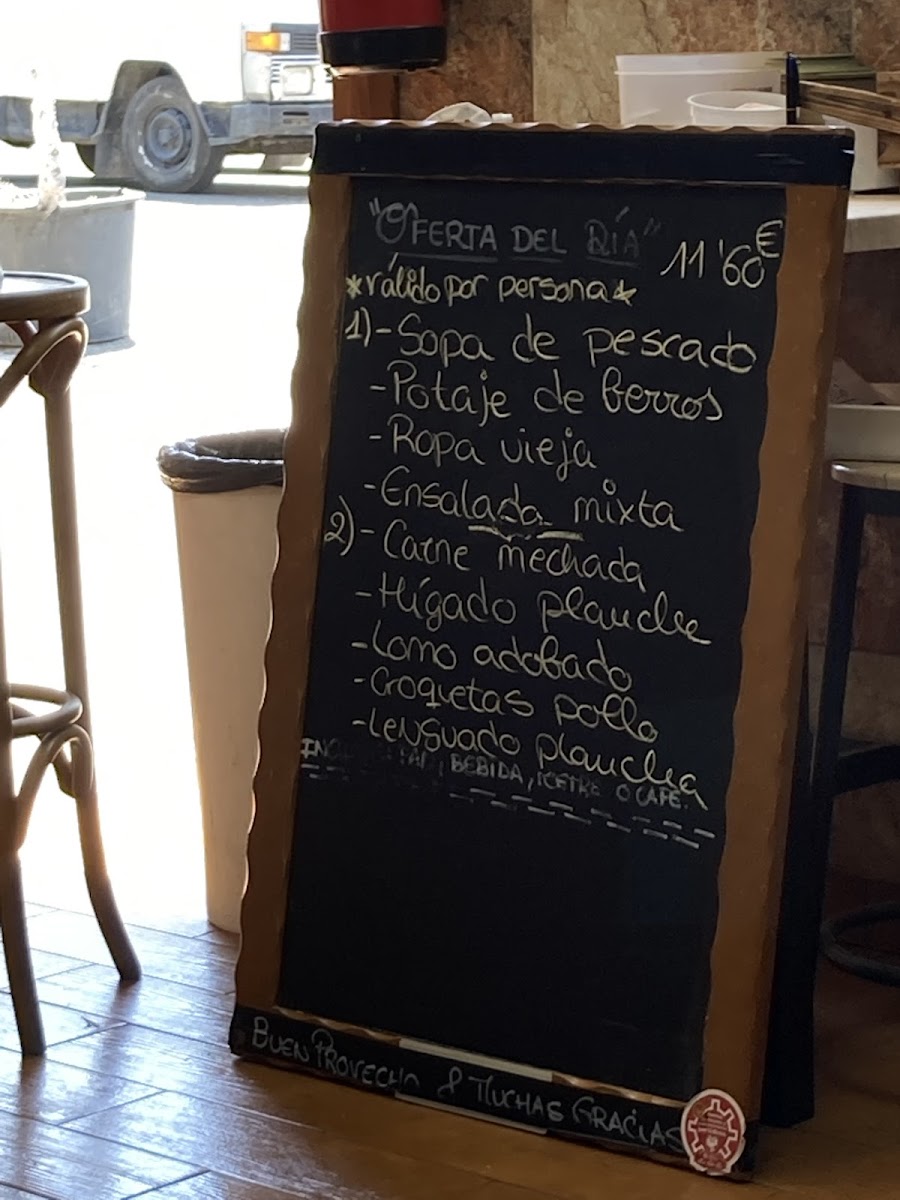 "OFERTA DEL DÍA" 11'60€
*válido por persona*
1) - Sopa de pescado
- Potaje de berros
- Ropa vieja
- Ensalada mixta
2) - Carne mechada
- Hígado plancha
- Lomo adobado
- Croquetas pollo
- Lenguado plancha
BEBIDA, O CAFE.
BUEN PROVECHO & MUCHAS GRACIAS